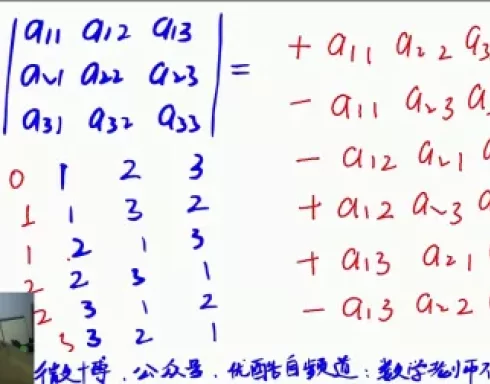 a11 a12 a13
a21 a22 a23 =
a31 a32 a33
+ a11 a22 a3
- a11 a23 a
- a12 a21 a
+ a12 a23 a
+ a13 a21
- a13 a22
0 1 2 3
1 1 3 2
1 2 1 3
2 2 3 1
2 3 1 2
3 3 2 1
微博、公众号、优酷自频道：数学老师不